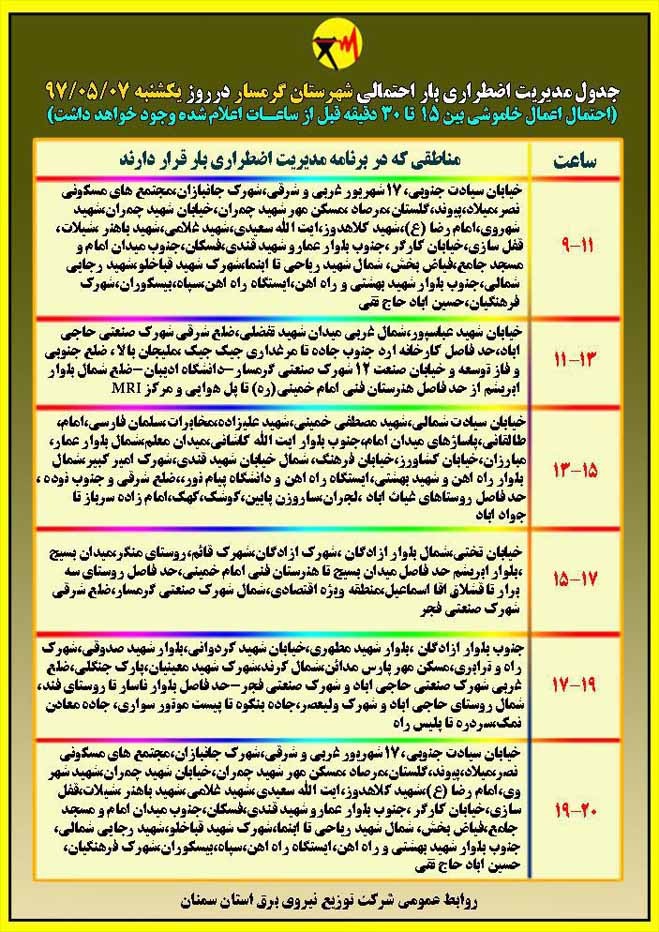 جدول مدیریت اضطراری بار احتمالی شهرستان گرمسار درروز یکشنبه ۹۷/۰۵/۰۷
(احتمال اعمال خاموشی بین ۱۵ تا ۳۰ دقیقه قبل از ساعات اعلام شده وجود خواهد داشت)
ساعت
مناطقی که در برنامه مدیریت اضطراری بار قرار دارند
۹-۱۱
خیابان سیادت جنوبی،۱۷ شهریور غربی و شرقی،شهرک جانبازان،مجتمع های مسکونی
نصر،میلاد،پیوند،گلستان،مرصاد ،مسکن مهر شهید چمران،خیابان شهید چمران،شهید
شهروی،امام رضا (ع)،شهید کلاهدوز،ایت الله سعیدی،شهید غلامی،شهید باهنر ،شیلات،
قفل سازی،خیابان کارگر ،جنوب بلوار عمارو شهید قندی،فسکان،جنوب میدان امام و
مسجد جامع،فیاض بخش، شمال شهید ریاحی تا ابنما،شهرک شهید قباخلو،شهید رجایی
شمالی،جنوب بلوار شهید بهشتی و راه اهن،ایستگاه راه اهن،سپاه،بیسکوران،شهرک
فرهنگیان،حسین اباد حاج تقی
۱۱-۱۳
خیابان شهید عباسپور،شمال غربی میدان شهید تفضلی،ضلع شرقی شهرک صنعتی حاجی
اباد،حد فاصل کارخانه ارد جنوب جاده تا مرغداری جیک جیک ،ملیجان بالا، ضلع جنوبی
و فاز توسعه و خیابان صنعت ۱۲ شهرک صنعتی گرمسار-دانشگاه ادیبان-ضلع شمال بلوار
ابریشم از حد فاصل هنرستان فنی امام خمینی(ره) تا پل هوایی و مرکز MRI
۱۳-۱۵
خیابان سیادت شمالی،شهید مصطفی خمینی،شهید علیزاده،مخابرات،سلمان فارسی،امام،
طالقانی،پاساژهای میدان امام،جنوب بلوار ایت الله کاشانی،میدان معلم،شمال بلوار عمار،
مبارزان،خیابان کشاورز،خیابان فرهنگ،شمال خیابان شهید قندی،شهرک امیر کبیر،شمال
بلوار راه اهن و شهید بهشتی،ایستگاه راه اهن و دانشگاه پیام نور،،ضلع شرقی و جنوب نوده ،
حد فاصل روستاهای غیاث اباد ،لجران،ساروزن پایین،کوشک،کهک،امام زاده سرباز تا
جواد اباد
۱۵-۱۷
خیابان تختی،شمال بلوار ازادگان ،شهرک ازادگان،شهرک قائم،روستای منگر،میدان بسیج
،بلوار ابریشم حد فاصل میدان بسیج تا هنرستان فنی امام خمینی،حد فاصل روستای سه
برار تا قشلاق اقا اسماعیل،منطقه ویژه اقتصادی،شمال شهرک صنعتی گرمسار،ضلع شرقی
شهرک صنعتی فجر
۱۷-۱۹
جنوب بلوار ازادگان ،بلوار شهید مطهری،خیابان شهید گردوانی،بلوار شهید صدوقی،شهرک
راه و ترابری،مسکن مهر پارس مدائن،شمال گرند،شهرک شهید معینیان،پارک جنگلی،ضلع
غربی شهرک صنعتی حاجی اباد و شهرک صنعتی فجر-حد فاصل بلوار ناسار تا روستای فند،
شمال روستای حاجی اباد و شهرک ولیعصر،جاده بنکوه تا پیست موتور سواری، جاده معادن
نمک،سردره تا پلیس راه
۱۹-۲۰
خیابان سیادت جنوبی،۱۷ شهریور غربی و شرقی،شهرک جانبازان،مجتمع های مسکونی
نصر،میلاد،پیوند،گلستان،مرصاد ،مسکن مهر شهید چمران،خیابان شهید چمران،شهید شهر
وی،امام رضا (ع)،شهید کلاهدوز،ایت الله سعیدی،شهید غلامی،شهید باهنر ،شیلات،قفل
سازی،خیابان کارگر ،جنوب بلوار عمارو شهید قندی،فسکان،جنوب میدان امام و مسجد
جامع،فیاض بخش، شمال شهید ریاحی تا ابنما،شهرک شهید قباخلو،شهید رجایی شمالی،
جنوب بلوار شهید بهشتی و راه اهن،ایستگاه راه اهن،سپاه،بیسکوران،شهرک فرهنگیان،
حسین اباد حاج تقی
روابط عمومی شرکت توزیع نیروی برق استان سمنان